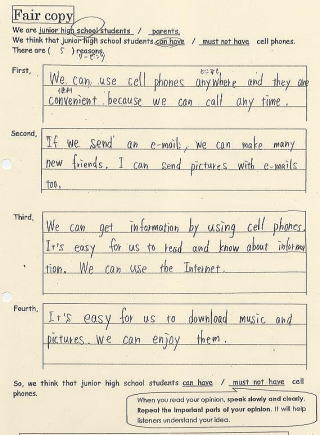 Fair copy
We are junior high school students / parents.
We think that junior high school students can have / must not have cell phones.
There are ( 5 ) reasons.
First,
We can use cell phones anywhere and they are
便利
convenient because we can call any time.
Second,
If we send an e-mail, we can make many
new friends. I can send pictures with e-mails
too.
Third,
We can get information by using cell phones.
It's easy for us to read and know about informa
tion. We can use the Internet.
Fourth,
It's easy for us to download music and
pictures. We can enjoy them.
So, we think that junior high school students can have / must not have cell
phones.
When you read your opinion, speak slowly and clearly.
Repeat the important parts of your opinion. It will help
listeners understand your idea.